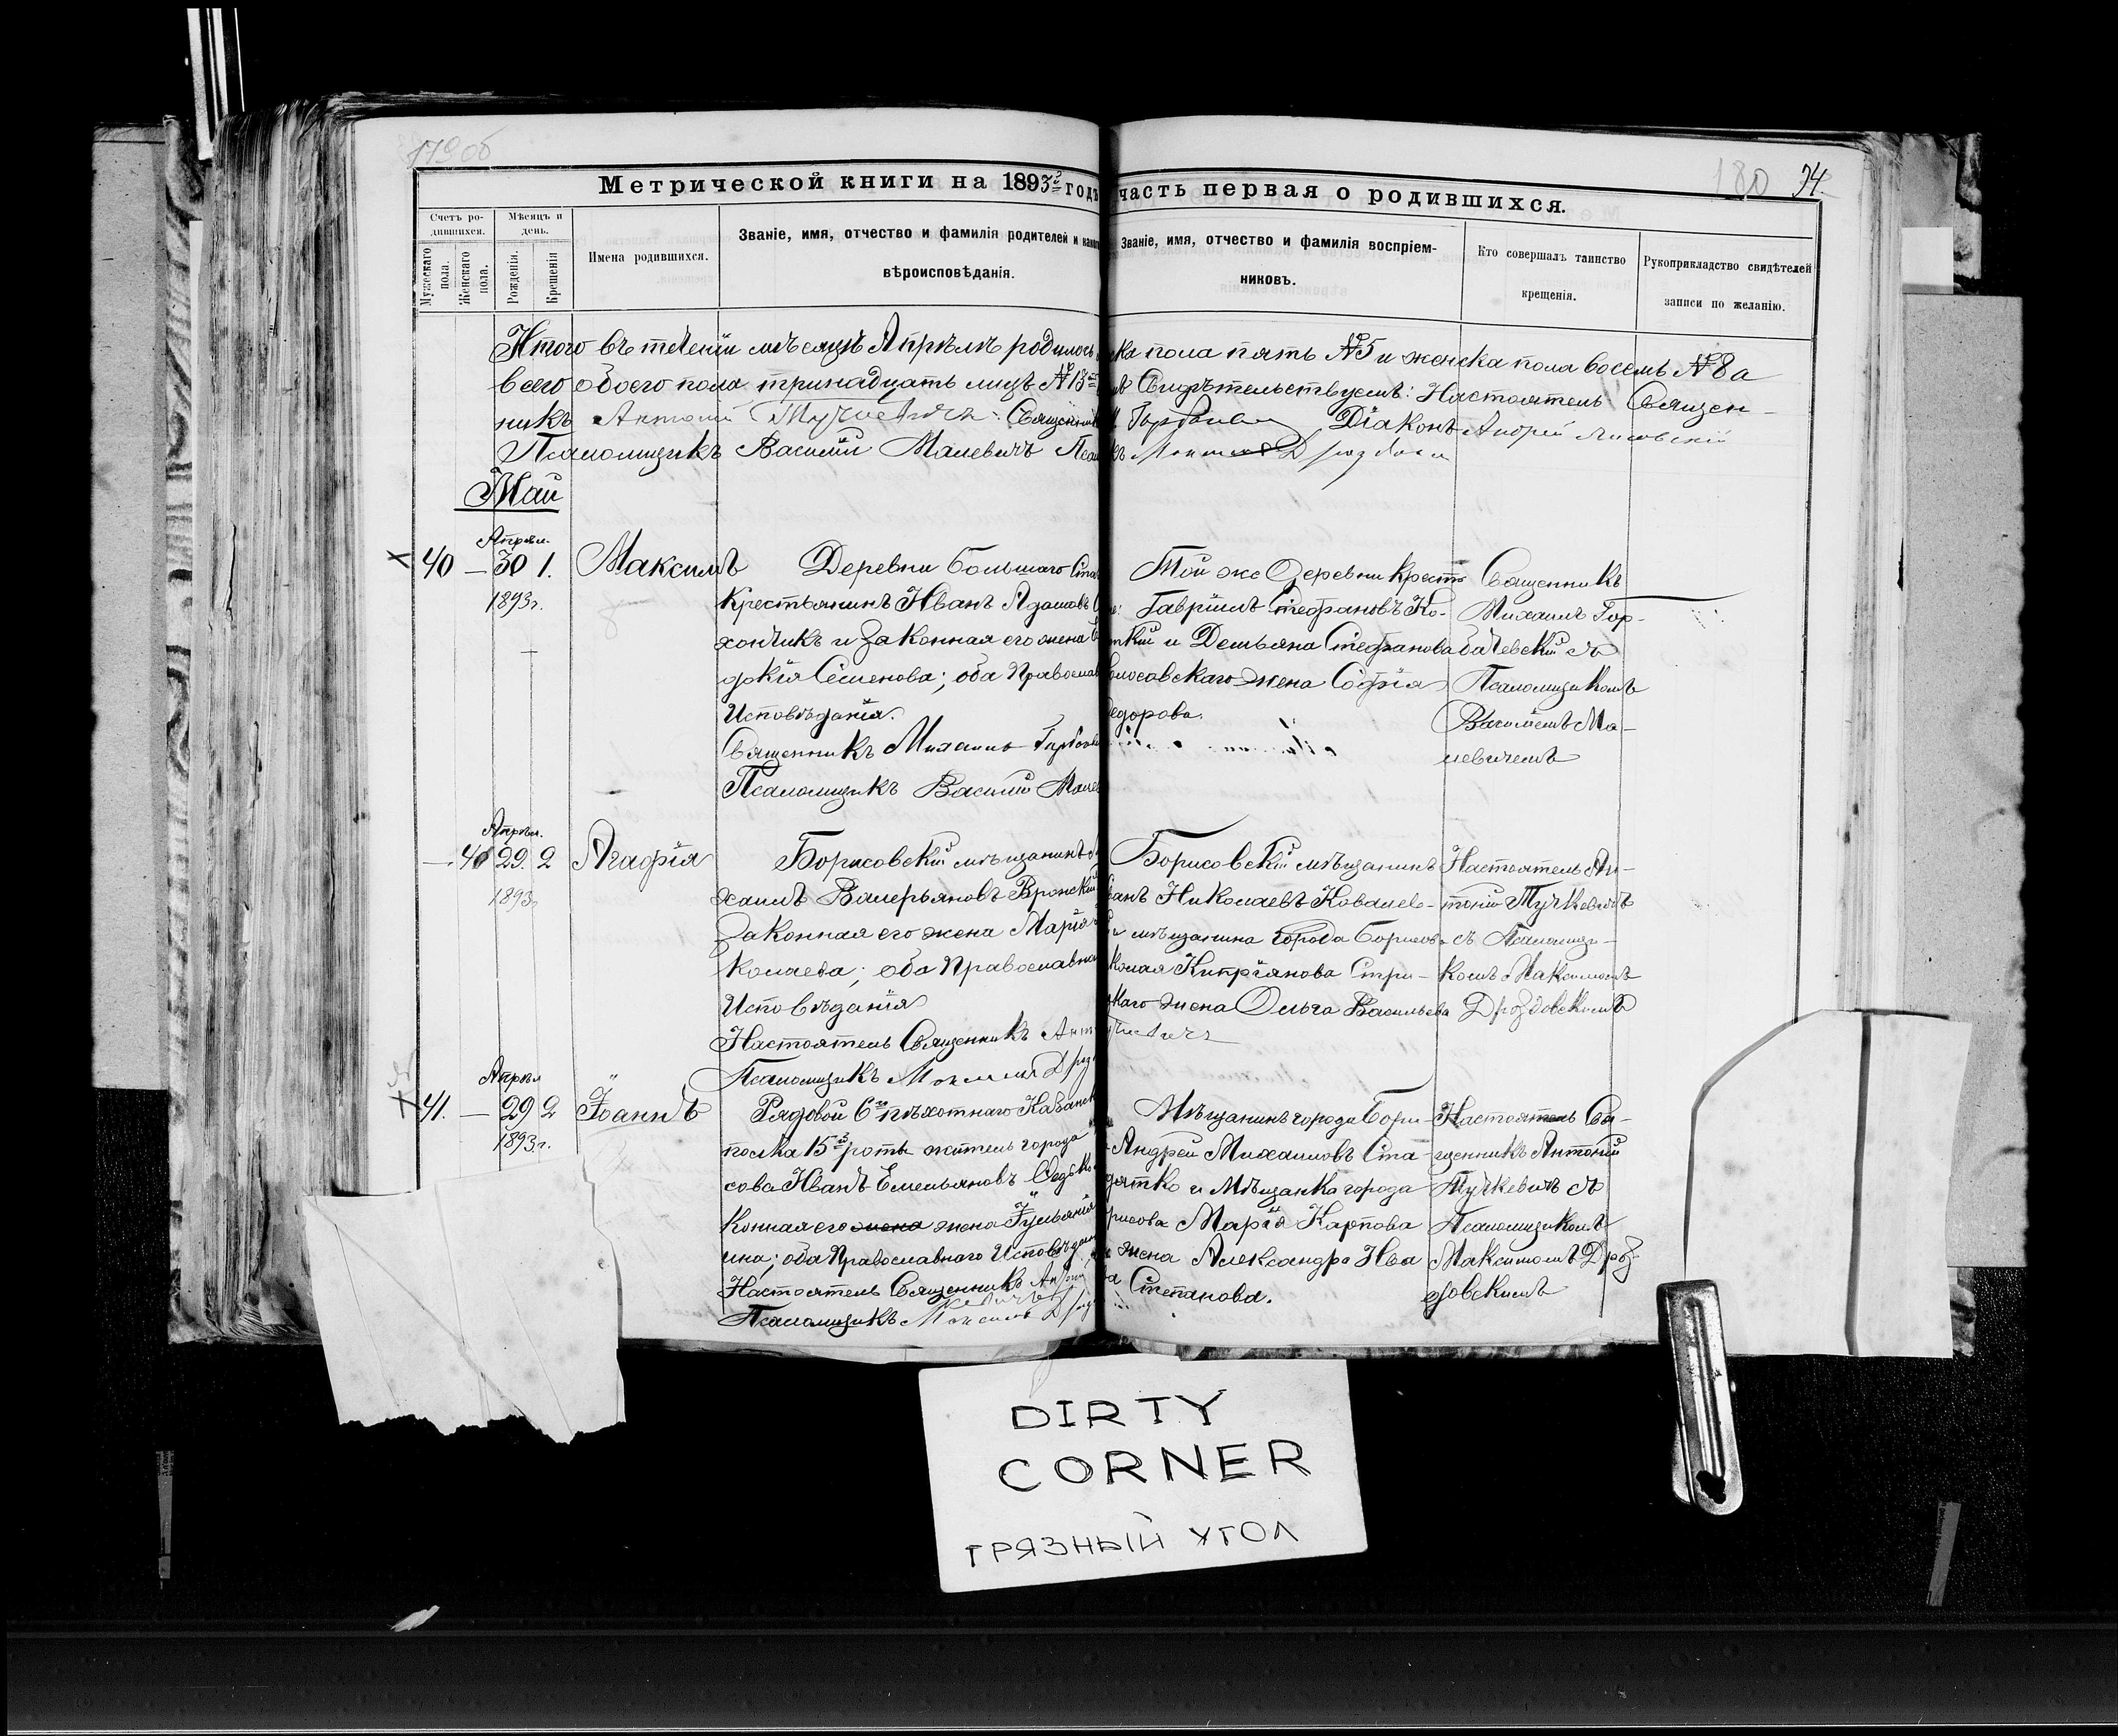 179 об
180 94.
Метрической книги на 1893й годъ часть первая о родившихся.
Счетъ родившихся.
Мужескаго пола.
Женскаго пола.
Мѣсяцъ и день.
Рожденія.
Крещенія
Имена родившихся.
Званіе, имя, отчество и фамилія родителей и
вѣроисповѣданія.
Званіе, имя, отчество и фамилія воспріем-
никовъ.
Кто совершалъ таинство
крещенія.
Рукоприкладство свидѣтелей
записи по желанію.
Итого въ теченіи мѣсяцѣ Апрѣлѣ родилось ска пола пять №5 и женска пола восемь №8 а
всего обоего пола тринадцать лицъ №13 Свидѣтельствуемъ: Настоятель Священ-
никъ Антоній Тучкевичъ Священникъ М. Горбачев Діаконъ Андрей Лисовскій
Псаломщикъ Василій Малевичъ
Май
Апрѣл.
40 — 30 1. Максимъ
1893г.
Деревни Большаго Ста
Крестьянинъ Иванъ Адамовъ
хончикъ и законная его жена
докія Семенова; оба Православ
Исповѣданія.
Священникъ Михаилъ Горбачев
Псаломщикъ Василій Мале
Той же Деревни Крестъ
Гавріилъ Стефановъ Ко-
ткій и Демьяна Стефанова
лосовскаго жена Софія
едорова.
Священникъ
Михаилъ Гор-
бачевскій съ
Псаломщикомъ
Василіемъ Ма-
левичемъ
Апрѣл.
— 40 29. 2 Агафія
1893г
Борисовскій мѣщанинъ
хаилъ Валерьяновъ Вронскій
Законная его жена Марія
колаева; оба Православна
Исповѣданія
Настоятель Священникъ Ант
Псаломщикъ Максимъ Дроз
Борисовскій мѣщанинъ
ванъ Николаевъ Ковалев-
и мѣщанина города Борисов
колая Кипріянова Стри-
скаго жена Ольга Васильева
Настоятель Ан-
тоній Тучкевичъ
съ Псаломщи-
комъ Максимомъ
Дроздовскимъ
Апрѣл
41. — 29 2 Іоаннъ
1893г.
Рядовой 6го пѣхотнаго Казанск
полка 15й роты житель города
сова Иванъ Емельяновъ Седько
конная его жена жена Іульянія
ина; оба Православнаго Исповѣдан
Настоятель Священникъ Антон
Псаломщикъ Максимъ Дрозд
Мѣщанинъ города Бори-
Андрей Михаиловъ Ста-
дятко и Мѣщанка города
рисова Марія Карпова
жена Александра Ива
Степанова.
Настоятель Свя-
щенникъ Антоній
Тучкевичъ съ
Псаломщикомъ
Максимомъ Дроз-
довскимъ
DIRTY
CORNER
ГРЯЗНЫЙ УГОЛ